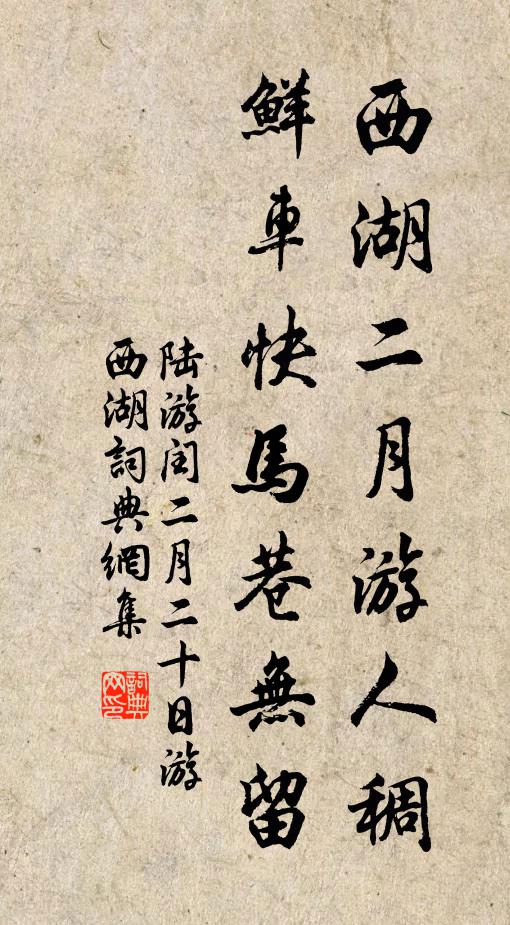 西湖二月游人稠
鮮車快馬巷無留
陆游闰二月二十日游
西湖詞典網集
詞典
网印